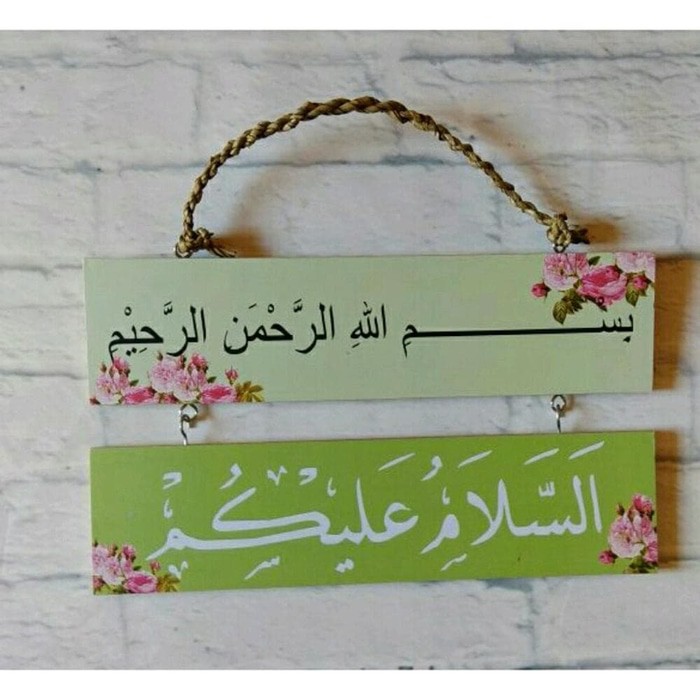 بِســـــــــمِ اللهِ الرَّحْمَنِ الرَّحِيْمِ
اَلسَّلَامُ عَلَيْكُمْ